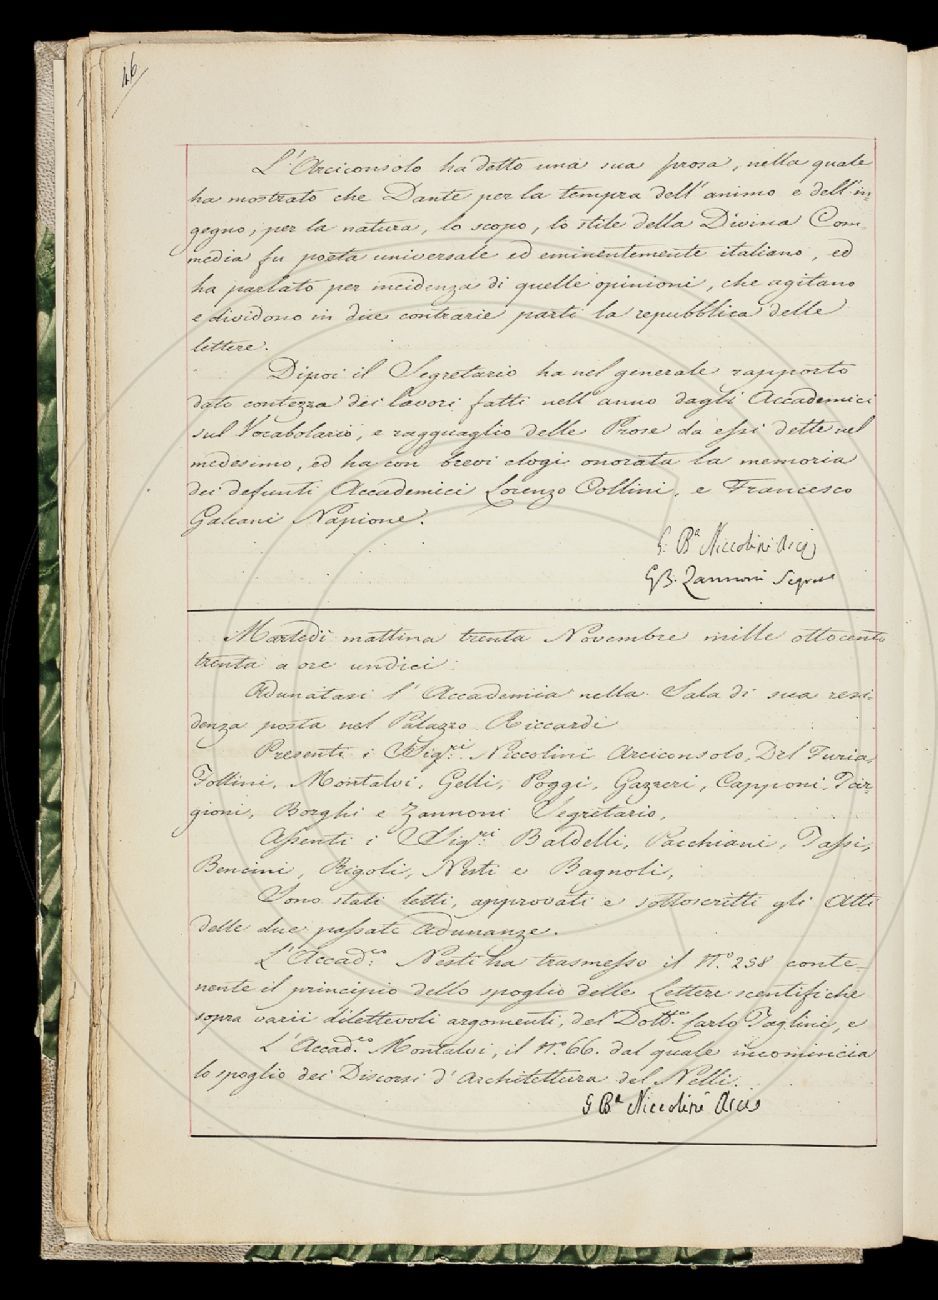 46
L'Arciconsolo ha detto una sua prosa, nella quale
ha mostrato che Dante per la tempra dell'animo e dell'in-
gegno, per la natura, lo scopo, lo stile della Divina Com-
media fu poeta universale ed eminentemente italiano, ed
ha parlato per incidenza di quelle opinioni, che agitano
e dividono in due contrarie parti la repubblica delle
lettere.
Dipoi il Segretario ha nel generale rapporto
dato contezza dei lavori fatti nell'anno dagli Accademici
sul Vocabolario, e ragguaglio delle Prose da essi dette nel
medesimo, ed ha con brevi elogi onorata la memoria
dei defunti Accademici Lorenzo Collini, e Francesco
Galeani Napione.
G. Ba Niccolini Arcis
GB. Zannoni Segret
Martedì mattina trenta Novembre mille ottocento
trenta a ore undici
Adunatasi l'Accademia nella Sala di sua resi-
denza posta nel Palazzo Riccardi
Presenti i Sigri. Niccolini Arciconsolo, Del Furia,
Follini, Montalvi, Gelli, Poggi, Gazzeri, Capponi, Tar-
gioni, Borghi e Zannoni Segretario,
Assenti i Sigri. Baldelli, Pacchiani, Tassi,
Bencini, Rigoli, Nesti e Bagnoli,
Sono stati letti, approvati e sottoscritti gli Atti
delle due passate adunanze.
L'Accad.co Nesti ha trasmesso il N.o 258 conte-
nente il principio dello spoglio delle Lettere scentifiche
sopra varii dilettevoli argomenti, del Dott.re Carlo Taglini, e
L'Accad.co Montalvi, il N.o 66. dal quale incomincia
lo spoglio dei Discorsi d'Architettura del Nelli.
G Ba Niccolini Arcis